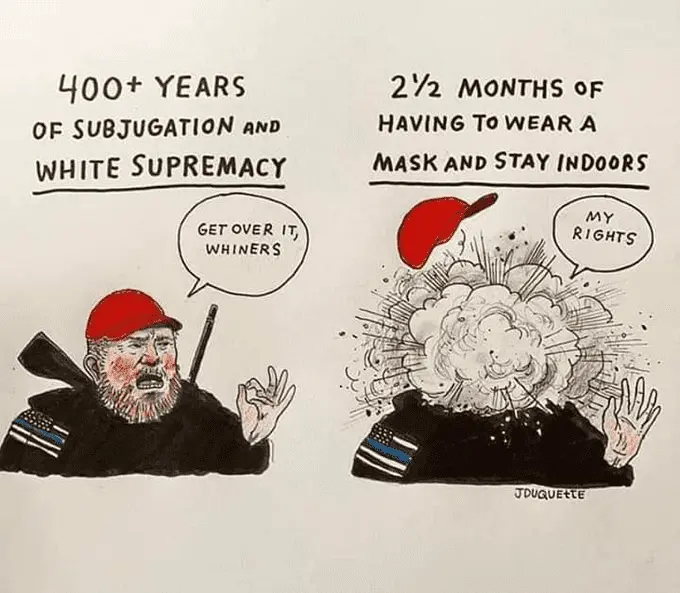 400+ YEARS
OF SUBJUGATION AND
WHITE SUPREMACY
GET OVER IT,
WHINERS
2½ MONTHS OF
HAVING TO WEAR A
MASK AND STAY INDOORS
MY
RIGHTS
JDUQUETTE